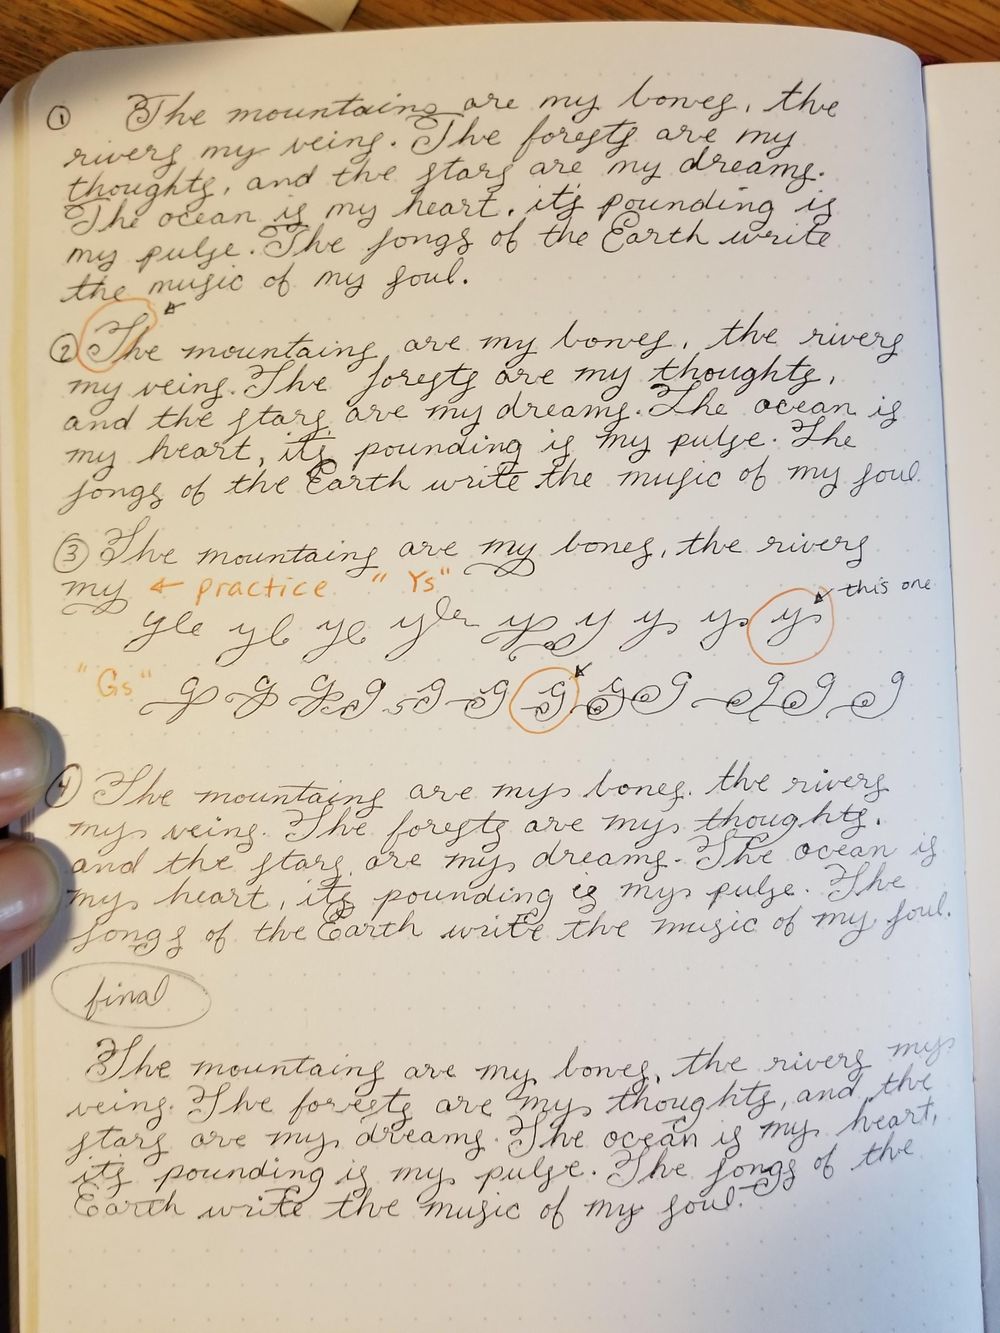 ① The mountains are my bones, the
rivers my veins. The forests are my
thoughts, and the stars are my dreams.
The ocean is my heart, it's pounding is
my pulse. The songs of the Earth write
the music of my soul.
② The mountains are my bones, the rivers
my veins. The forests are my thoughts,
and the stars are my dreams. The ocean is
my heart, its pounding is my pulse. The
songs of the Earth write the music of my soul
③ The mountains are my bones, the rivers
my ← practice "Ys"
this one
yle yl ye yler y y y y y
"Gs" g g g g g g g g g g g g
④ The mountains are my bones, the rivers
my veins. The forests are my thoughts,
and the stars are my dreams. The ocean is
my heart, its pounding is my pulse. The
songs of the Earth write the music of my soul.
final
The mountains are my bones, the rivers my
veins. The forests are my thoughts, and the
stars are my dreams. The ocean is my heart,
its pounding is my pulse. The songs of the
Earth write the music of my soul.